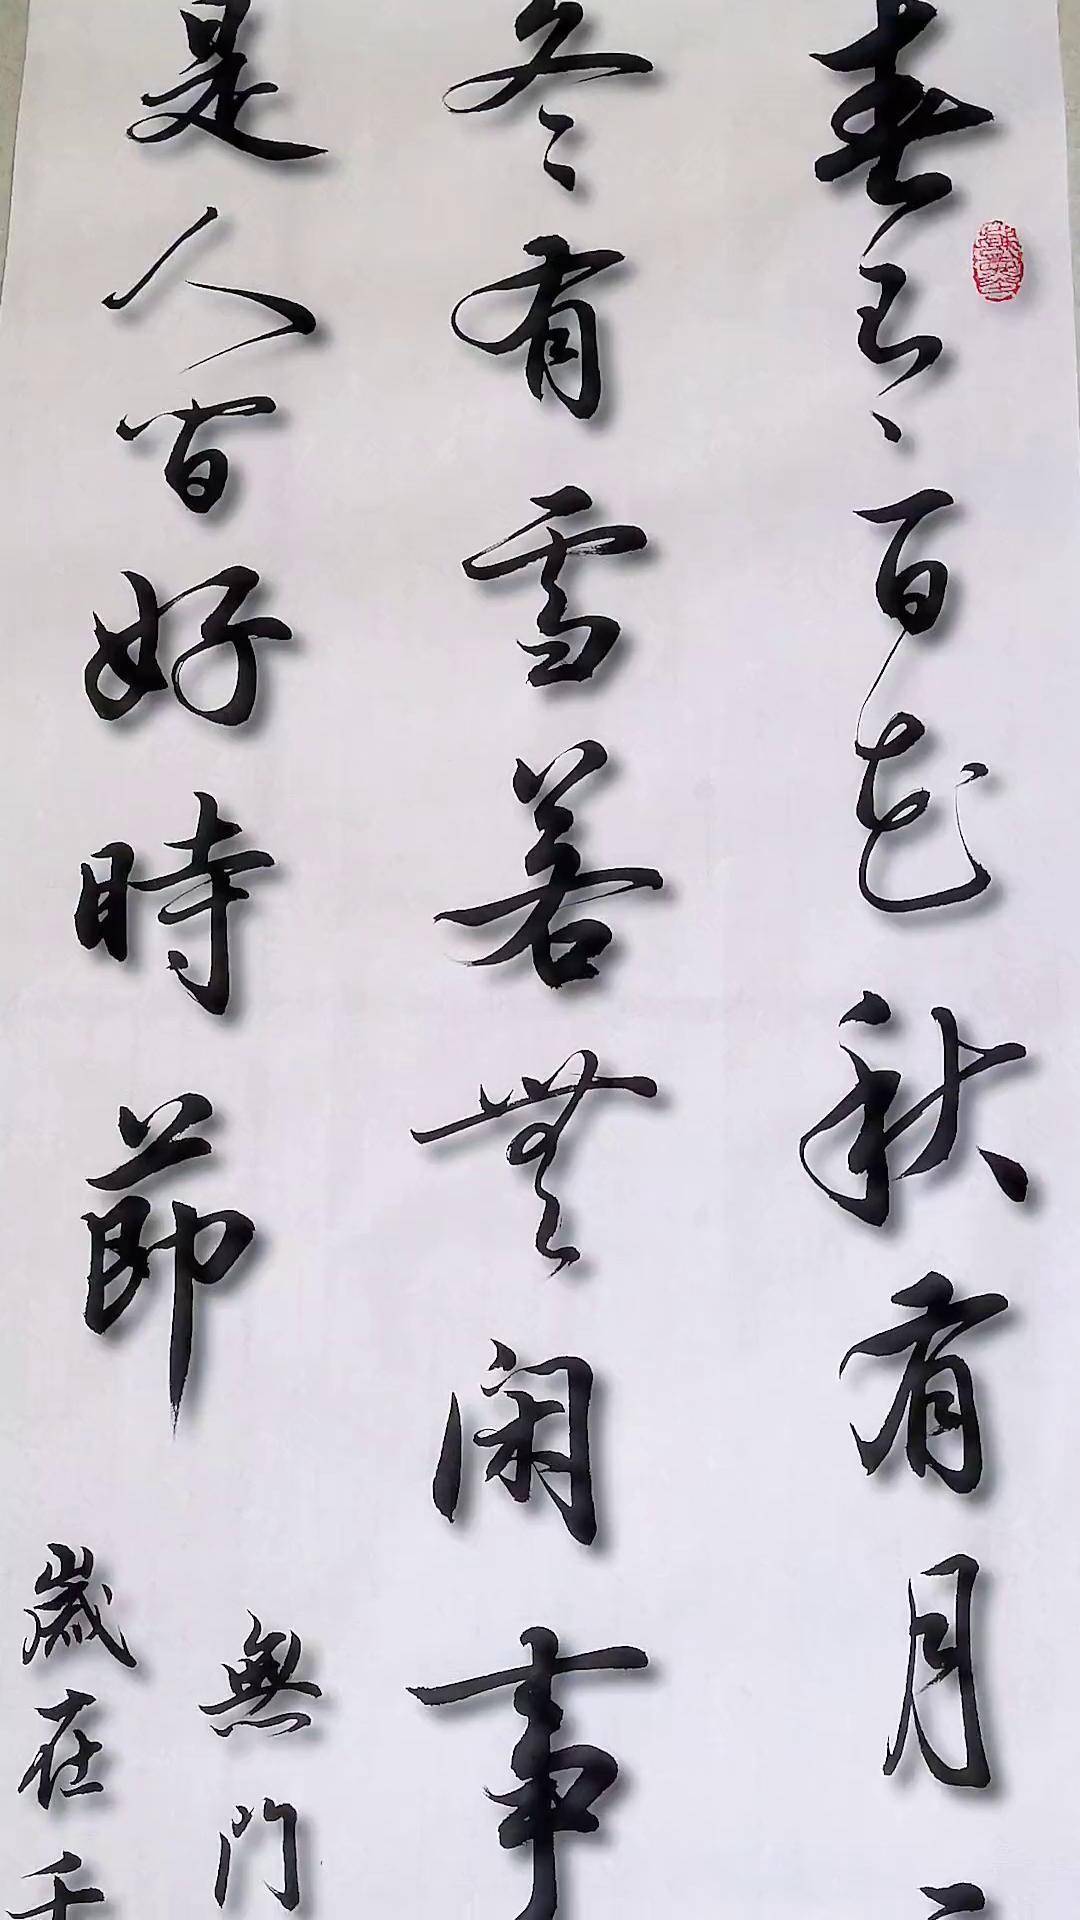 春有百花秋有月
冬有雪若無闲事
是人間好時節
無門
歲在